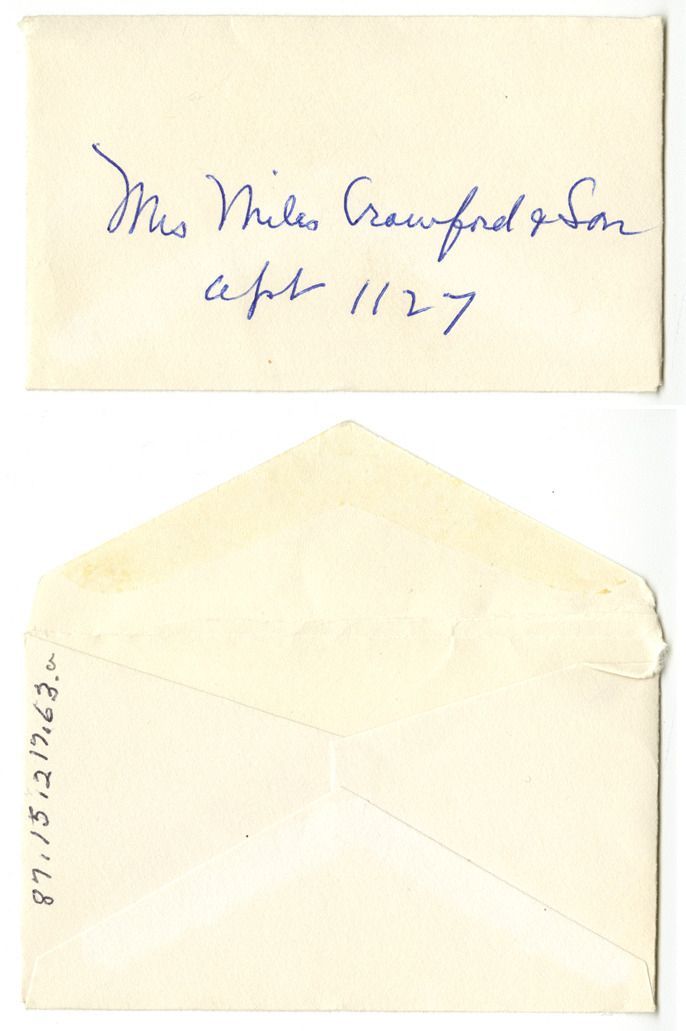 Mrs Miles Crawford & Son
apt 1127
87.15.217.63.a